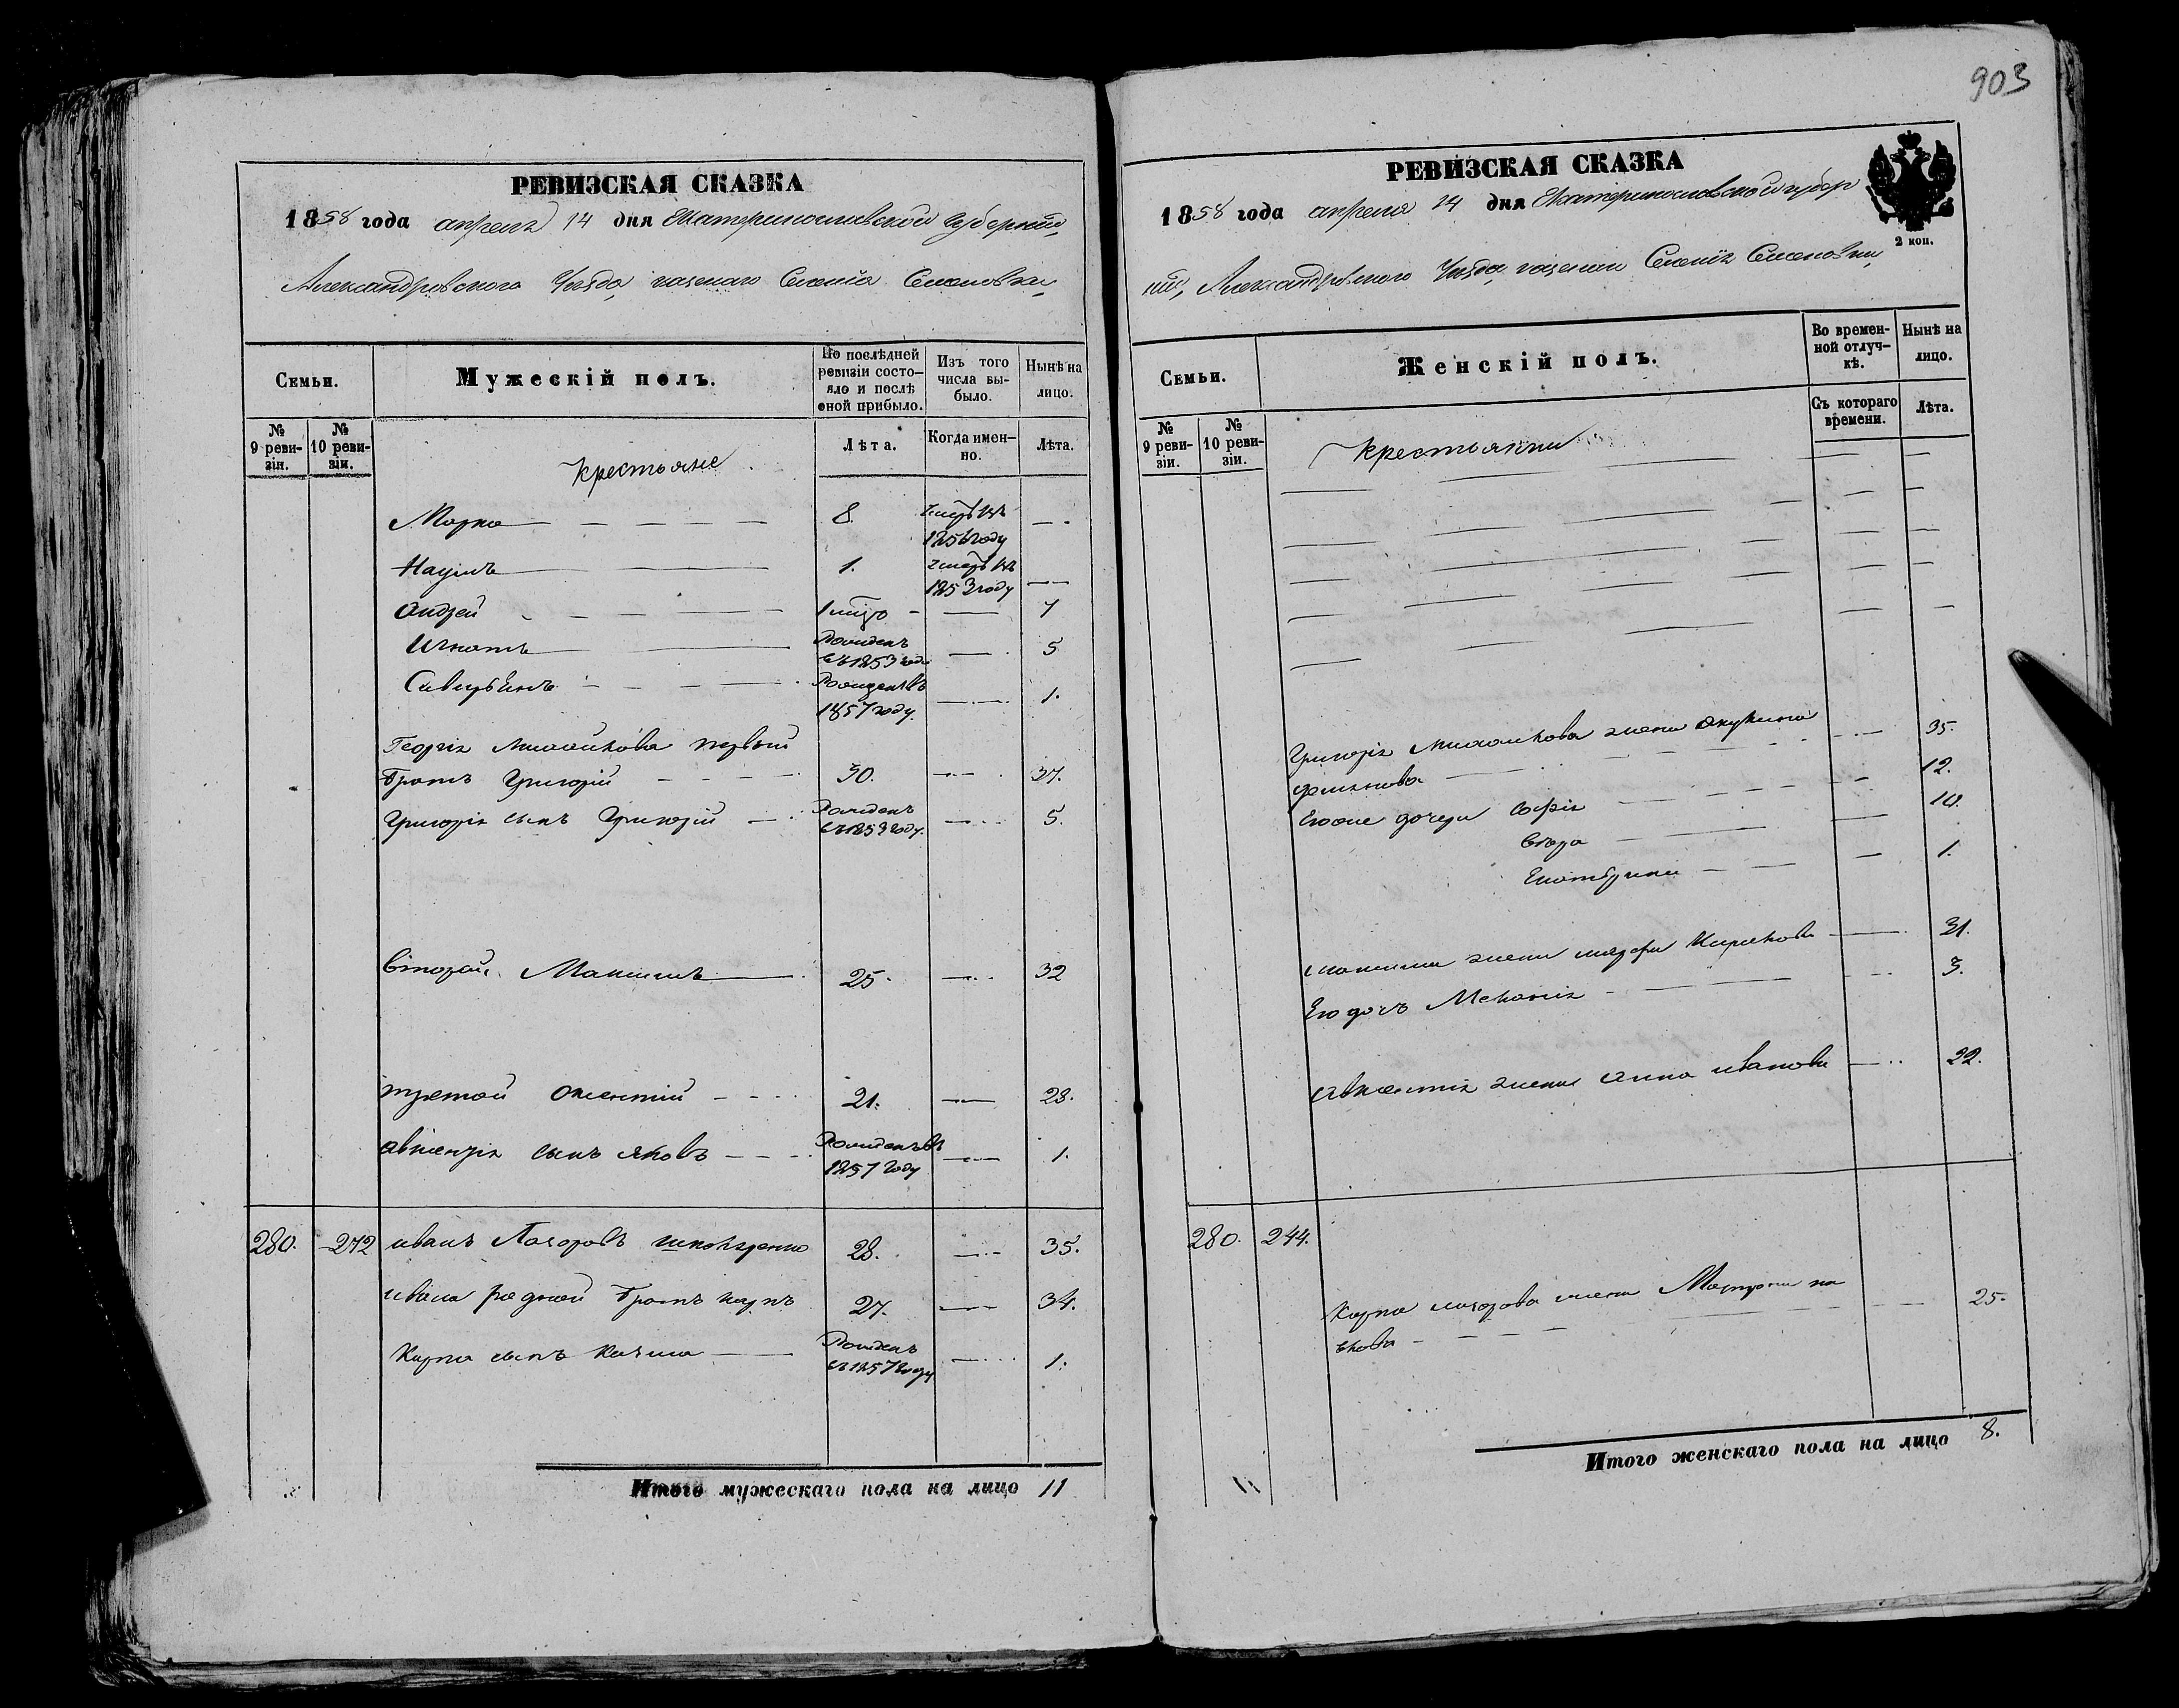 903
РЕВИЗСКАЯ СКАЗКА
1858 года апреля 14 дня Екатеринославской Губернии,
Александровского Уезда, казенаго Селенія Семеновки,
Семьи.
Мужескій полъ.
По послѣдней ревизіи состояло и послѣ оной прибыло.
Изъ того числа выбыло.
Нынѣ на лицо.
№ 9 ревизіи.
№ 10 ревизіи.
Лѣта.
Когда именно.
Лѣта.
Крестьяне
Марко — 8. умеръ въ 1856 году —
Наумъ — 1. умеръ въ 1853 году —
Андрей — 1 — 7
Игнатъ — Рожденъ въ 1853 году — 5
Рожденъ въ 1857 году. — 1.
Георгія первый
братъ Григорій — 30. — 37.
Григорія сынъ Григорій — Рожденъ въ 1853 году. — 5.
второй Максимъ — 25. — 32
третой — 21. — 28.
сынъ яковъ — Рожденъ въ 1857 году — 1.
280. 272 иванъ 28. — 35.
ивана родной братъ карпъ 27. — 34.
Карпа сынъ — Рожденъ въ 1857 году — 1.
Итого мужескаго пола на лицо 11
РЕВИЗСКАЯ СКАЗКА
2 коп.
1858 года апреля 14 дня Екатеринославской губер
ніи, Александровского Уезда, казенаго Селенія Семеновки,
Семьи.
Женскій полъ.
Во временной отлучкѣ.
Нынѣ на лицо.
№ 9 ревизіи.
№ 10 ревизіи.
Съ котораго времени.
Лѣта.
Крестьянки
Григорія жена — 35.
Его дочери Софія — 12.
Вера — 10.
Екатерина — 1.
максима жена — 31.
Его дочь Меланія — 3.
жена анна иванова — 22.
280. 244.
Карпа жена Матрона — 25.
Итого женскаго пола на лицо 8.